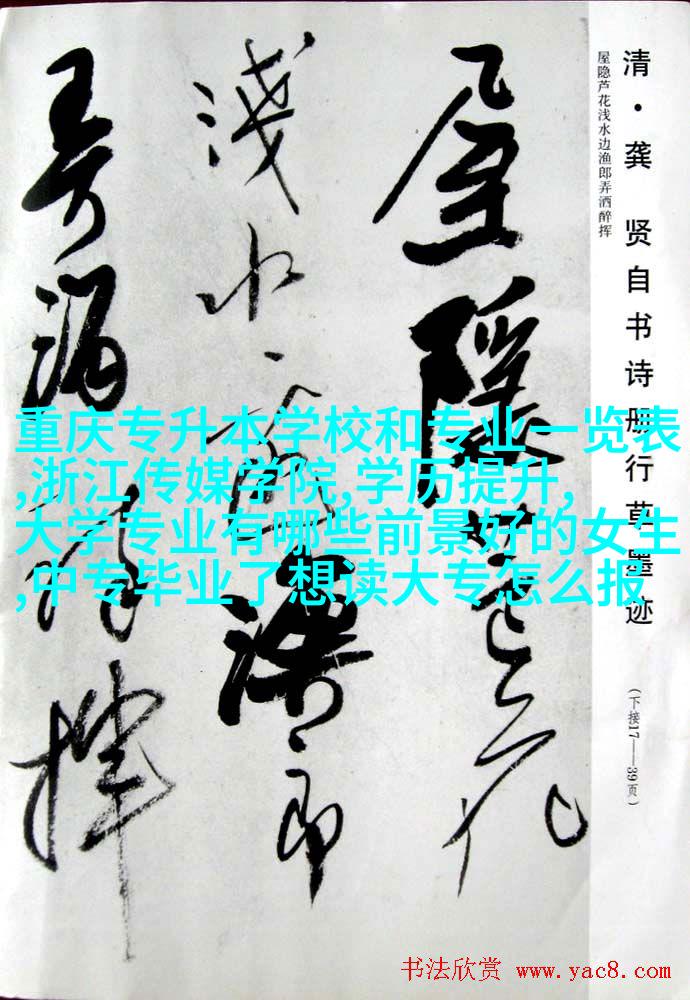 清·龚 贤自书诗册行草墨迹
屋隐芦花浅水边渔郎弄洒醉挥
(下接17——39页)
屋隐芦花
浅水边渔郎
弄酒醉挥
重庆专升本学校和专业一览表
,浙江传媒学院,学历提升,
大学专业有哪些前景好的女生
,中专毕业了想读大专怎么报
书法欣赏 www.yac8.com